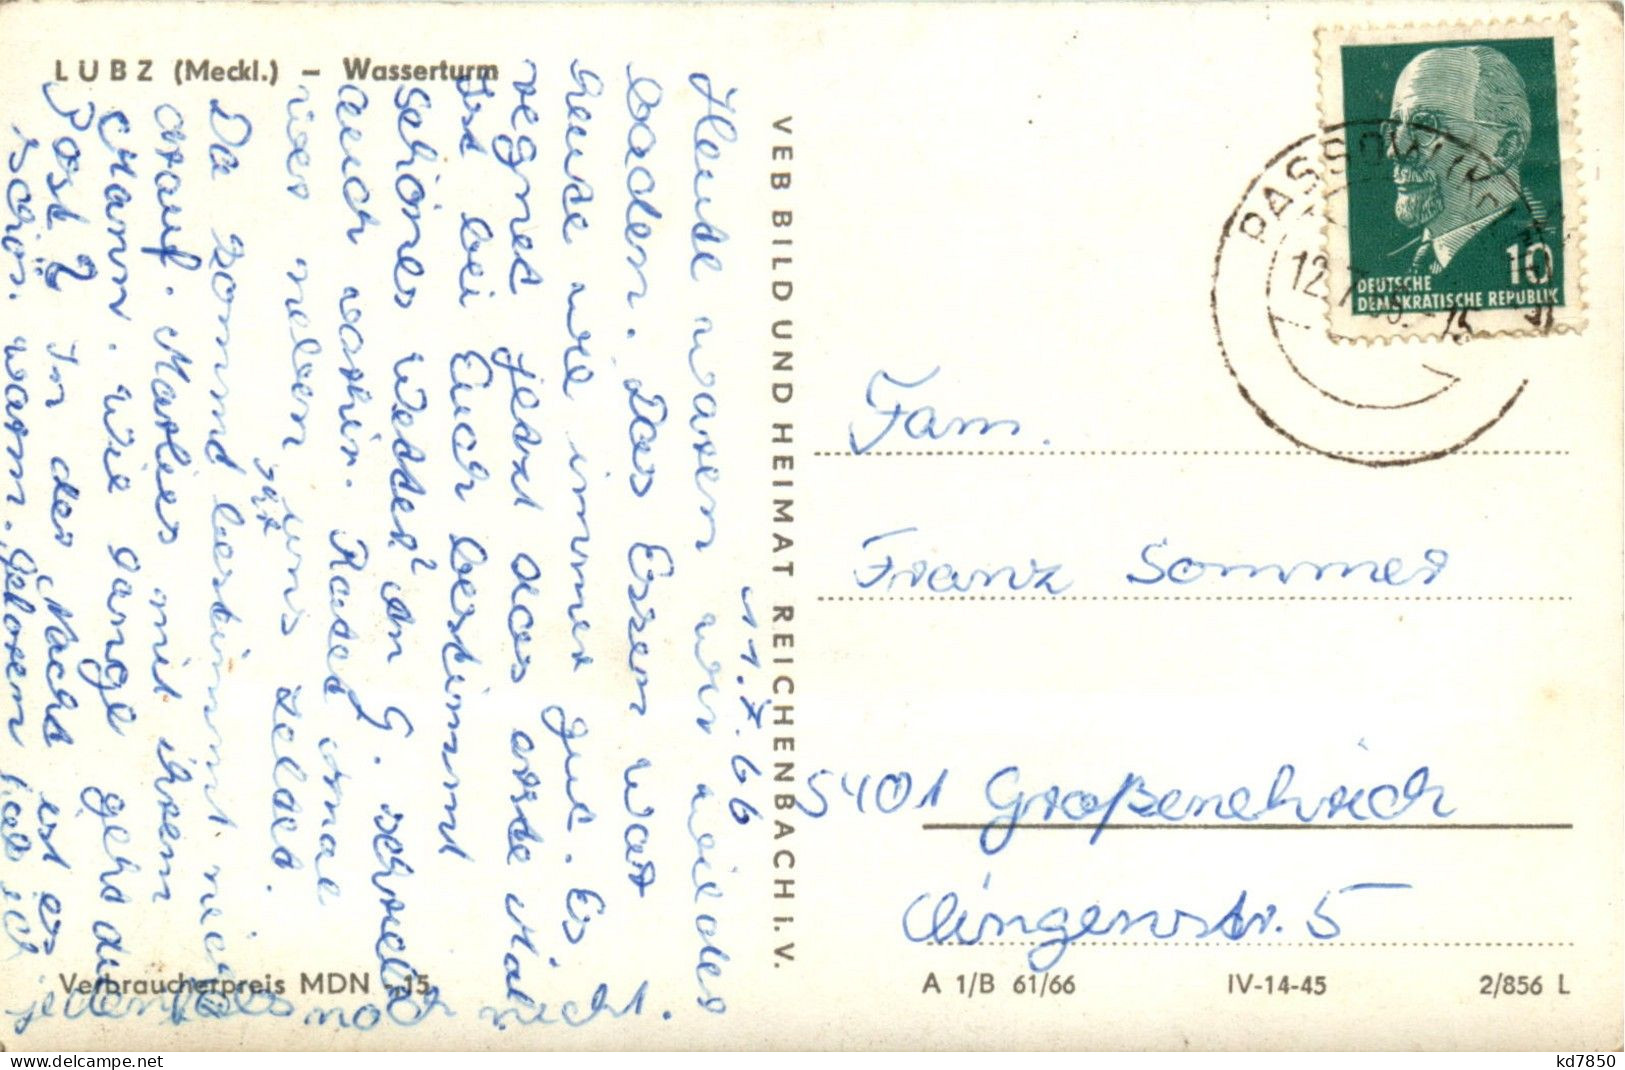 LÜBZ (Meckl.) – Wasserturm
11.7.66
Heute waren wir wieder
baden. Das Essen war
heute wie immer gut. Es
regnet jetzt das erste Mal
Ist bei Euch bestimmt
schönes Wetter? An G. schreib
auch weiter. Ratet mal
wer neben uns zeltet.
Da kommt bestimmt nie
drauf. Marlies mit ihrem
Mann. Wie lange geht die
Post? In der Nacht ist es
schön warm. gefroren hab ich
jedenfalls noch nicht.
VEB BILD UND HEIMAT REICHENBACH i. V.
PASSOW
12.7.66.-15
10
DEUTSCHE
DEMOKRATISCHE REPUBLIK
Fam.
Franz Sommer
5401 Großenehrich
Lingenstr. 5
Verbraucherpreis MDN -,15
A 1/B 61/66
IV-14-45
2/856 L
www.delcampe.net
kd7850